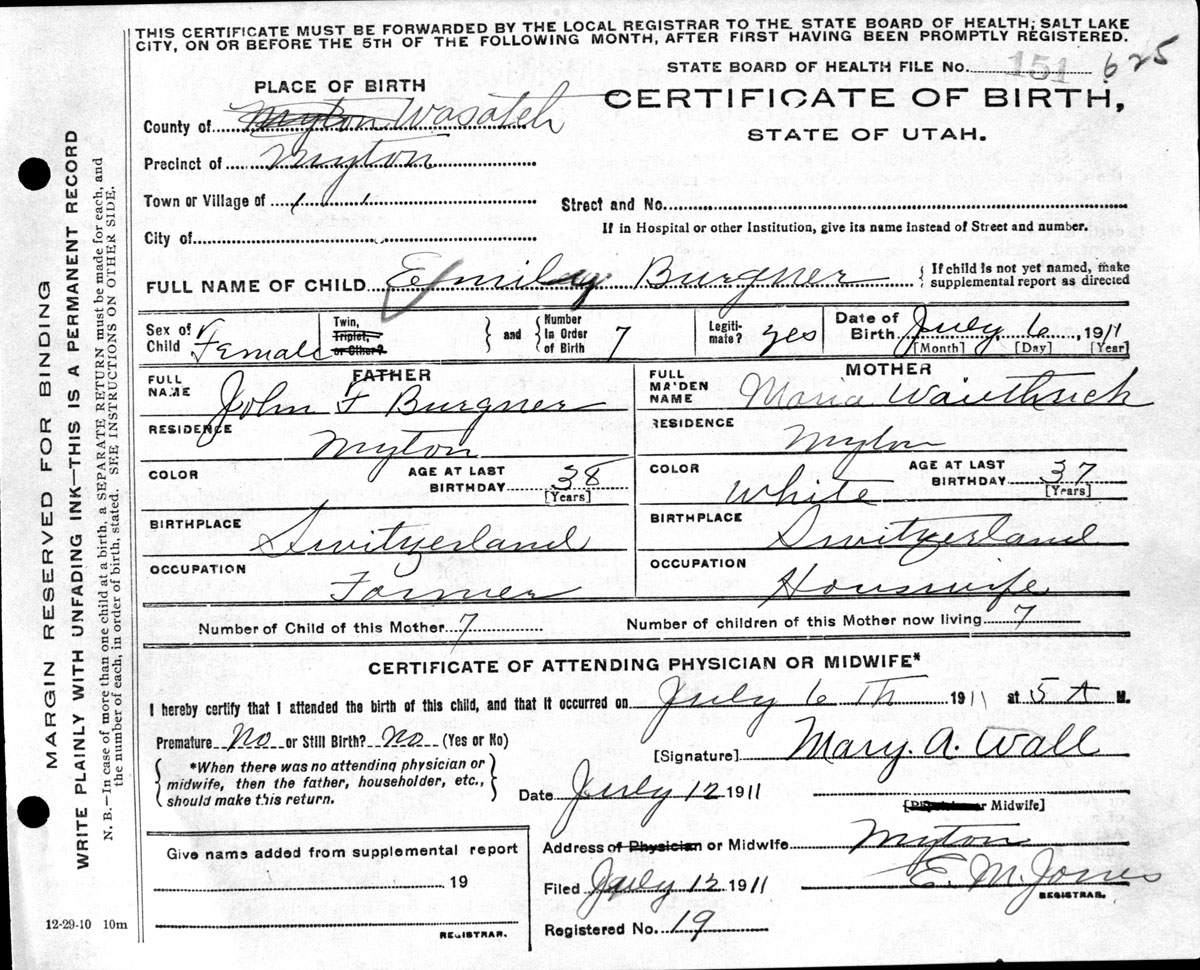 THIS CERTIFICATE MUST BE FORWARDED BY THE LOCAL REGISTRAR TO THE STATE BOARD OF HEALTH, SALT LAKE
CITY, ON OR BEFORE THE 5TH OF THE FOLLOWING MONTH, AFTER FIRST HAVING BEEN PROMPTLY REGISTERED.
STATE BOARD OF HEALTH FILE No. 151 625
PLACE OF BIRTH
CERTIFICATE OF BIRTH,
STATE OF UTAH.
County of Myton Wasatch
Precinct of Myton
Town or Village of " "
Street and No.
City of
If in Hospital or other Institution, give its name instead of Street and number.
FULL NAME OF CHILD Emily Burgner { If child is not yet named, make
supplemental report as directed
Sex of Child Female
Twin, Triplet, or Other? } and { Number In Order of Birth 7
Legitimate? yes
Date of Birth July 6, 1911
[Month] [Day] [Year]
FATHER
FULL NAME John F Burgner
RESIDENCE Myton
COLOR
AGE AT LAST BIRTHDAY 38 [Years]
BIRTHPLACE Switzerland
OCCUPATION Farmer
MOTHER
FULL MAIDEN NAME Maria
RESIDENCE Myton
COLOR White
AGE AT LAST BIRTHDAY 37 [Years]
BIRTHPLACE Switzerland
OCCUPATION Houswife
Number of Child of this Mother 7
Number of children of this Mother now living 7
CERTIFICATE OF ATTENDING PHYSICIAN OR MIDWIFE*
I hereby certify that I attended the birth of this child, and that it occurred on July 6 Th 1911 at 5 A M.
Premature No or Still Birth? No (Yes or No)
[Signature] Mary. A. Wall
{ *When there was no attending physician or
midwife, then the father, householder, etc.,
should make this return. }
Date July 12 1911
[Physician or Midwife]
Address of Physician or Midwife Myton
Filed July 12 1911
E. M. Jones
REGISTRAR.
Registered No. 19
Give name added from supplemental report
19
REGISTRAR.
12-29-10 10m
MARGIN RESERVED FOR BINDING
WRITE PLAINLY WITH UNFADING INK—THIS IS A PERMANENT RECORD
N. B.—In case of more than one child at a birth, a SEPARATE RETURN must be made for each, and
the number of each, in order of birth, stated. SEE INSTRUCTIONS ON OTHER SIDE.